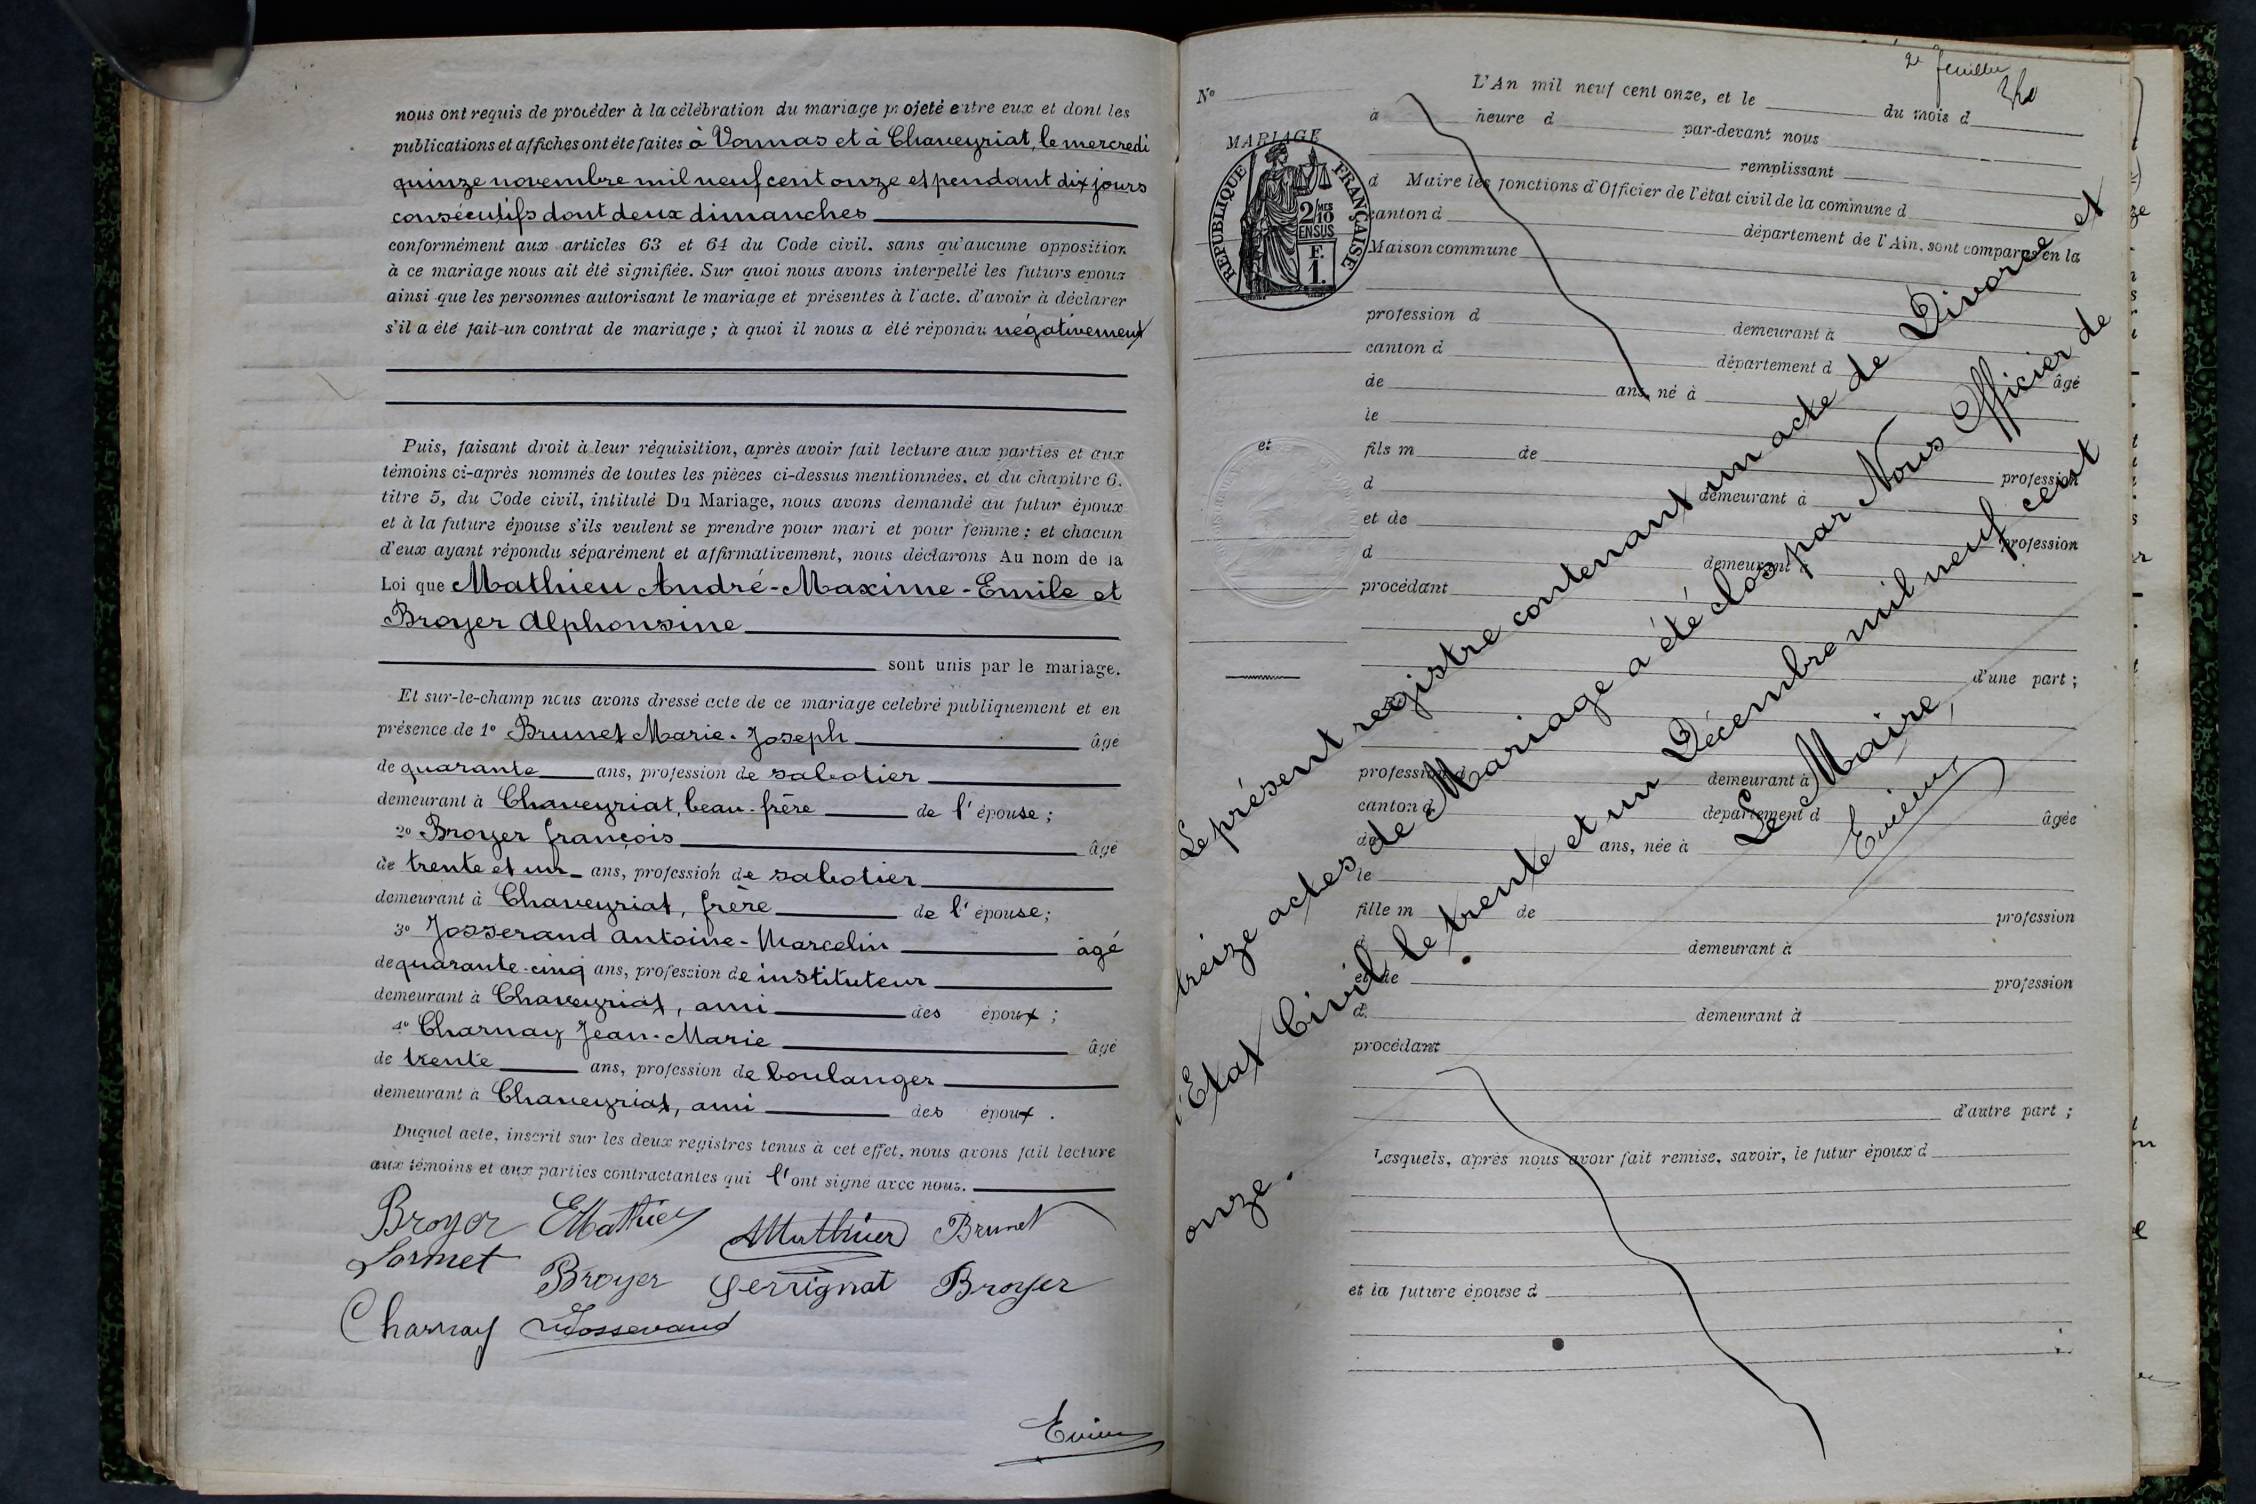 nous ont requis de procéder à la célébration du mariage projeté entre eux et dont les
publications et affiches ont été faites à Vonnas et à Chaveyriat, le mercredi
quinze novembre mil neuf cent onze et pendant dix jours
consécutifs dont deux dimanches
conformément aux articles 63 et 64 du Code civil, sans qu'aucune opposition
à ce mariage nous ait été signifiée. Sur quoi nous avons interpellé les futurs époux
ainsi que les personnes autorisant le mariage et présentes à l'acte, d'avoir à déclarer
s'il a été fait un contrat de mariage ; à quoi il nous a été répondu négativement
Puis, faisant droit à leur réquisition, après avoir fait lecture aux parties et aux
témoins ci-après nommés de toutes les pièces ci-dessus mentionnées, et du chapitre 6,
titre 5, du Code civil, intitulé Du Mariage, nous avons demandé au futur époux
et à la future épouse s'ils veulent se prendre pour mari et pour femme ; et chacun
d'eux ayant répondu séparément et affirmativement, nous déclarons Au nom de la
Loi que Mathieu André-Maxime-Emile et
Broyer Alphonsine
sont unis par le mariage.
Et sur-le-champ nous avons dressé acte de ce mariage célébré publiquement et en
présence de 1º Brunet Marie-Joseph âgé
de quarante ans, profession de sabotier
demeurant à Chaveyriat, beau-frère de l'épouse ;
2º Broyer françois âgé
de trente et un ans, profession de sabotier
demeurant à Chaveyriat, frère de l'épouse;
3º Josserand Antoine-Marcelin âgé
de quarante-cinq ans, profession de instituteur
demeurant à Chaveyriat, ami des époux ;
4º Charnay Jean-Marie âgé
de trente ans, profession de boulanger
demeurant à Chaveyriat, ami des époux .
Duquel acte, inscrit sur les deux registres tenus à cet effet, nous avons fait lecture
aux témoins et aux parties contractantes qui l'ont signé avec nous.
Broyer EMathieu Mathieu Brunet
Lormet Broyer Perrignat Broyer
Charnay Josserand
2e feuillet
Nº
MARIAGE
RÉPUBLIQUE FRANÇAISE
2/10 MES
EN SUS
F.
1.
et
L'An mil neuf cent onze, et le du mois d
à heure d par-devant nous
remplissant
d Maire les fonctions d'Officier de l'état civil de la commune d
canton d département de l'Ain, sont comparus en la
Maison commune
profession d demeurant à
canton d département d
de ans, né à âgé
le
fils m de
profession
d demeurant à
et de
profession
d demeurant à
procédant
d'une part ;
profession d demeurant à
canton d département d âgée
de ans, née à
le
fille m de profession
d demeurant à
et de profession
d. demeurant à
procédant
d'autre part ;
Lesquels, après nous avoir fait remise, savoir, le futur époux d
et la future épouse d
Le présent registre contenant un acte de Divorce et
treize actes de Mariage a été clos par Nous Officier de
l'Etat Civil le trente et un Décembre mil neuf cent
onze.
Le Maire,